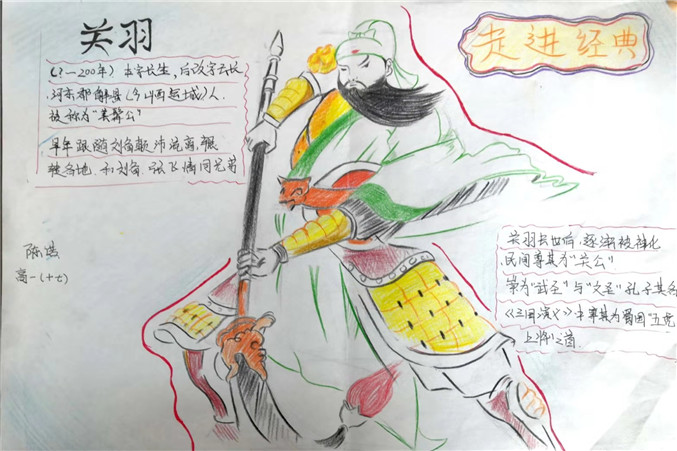 关羽
走进经典
(?—200年) 本字长生,后改字云长
河东郡解县(今山西运城)人.
被称为"美髯公"
早年跟随刘备颠沛流离,辗
转各地 和刘备、张飞情同兄弟
高一(十七)
关羽去世后,逐渐被神化
民间尊其为"关公"
崇为"武圣"与"文圣"孔子其名
《三国演义》中尊其为蜀国"五虎
上将"之首